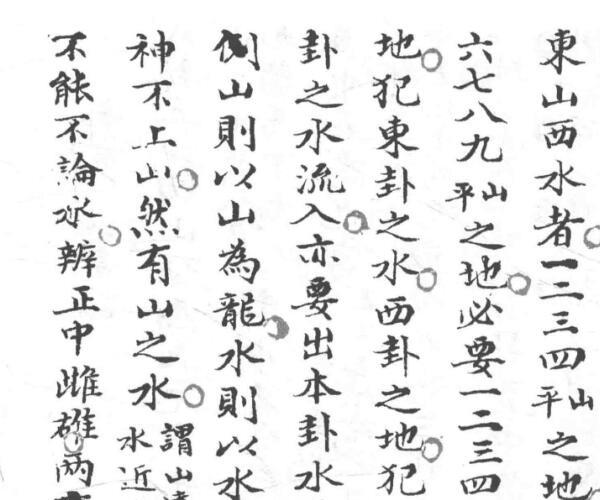 東山西水者一二三四山平之地
六七八九山平之地必要一二三四
地犯東卦之水西卦之地犯
卦之水流入亦要出本卦水
倒山則以山為龍水則以水
神不上山然有山之水謂山水近
不能不論水辨正中雌雄兩